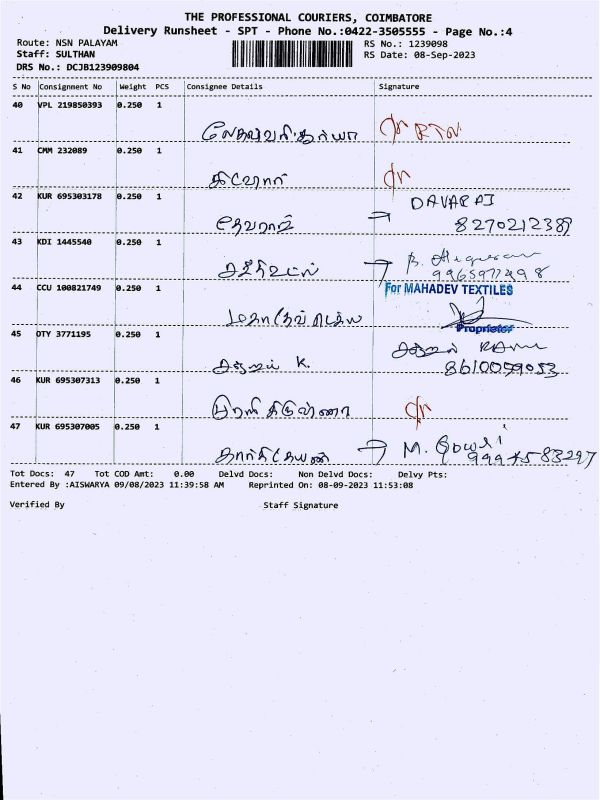 THE PROFESSIONAL COURIERS, COIMBATORE
Delivery Runsheet - SPT - Phone No.:0422-3505555 - Page No.:4
Route: NSN PALAYAM
RS No.: 1239098
Staff: SULTHAN
RS Date: 08-Sep-2023
DRS No.: DCJB123909804
S No Consignment No Weight PCS Consignee Details Signature
40 VPL 219850393 0.250 1
41 CMM 232089 0.250 1
42 KUR 695303178 0.250 1
DAVARAJ
தேவராஜ் → 8270212389
43 KDI 1445540 0.250 1
→ B.
44 CCU 100821749 0.250 1
For MAHADEV TEXTILES
மகாதேவ்
Proprietor
45 OTY 3771195 0.250 1
K. 8610059053
46 KUR 695307313 0.250 1
47 KUR 695307005 0.250 1
→ M. Gowri
Tot Docs: 47 Tot COD Amt: 0.00 Delvd Docs: Non Delvd Docs: Delvy Pts:
Entered By :AISWARYA 09/08/2023 11:39:58 AM Reprinted On: 08-09-2023 11:53:08
Verified By Staff Signature